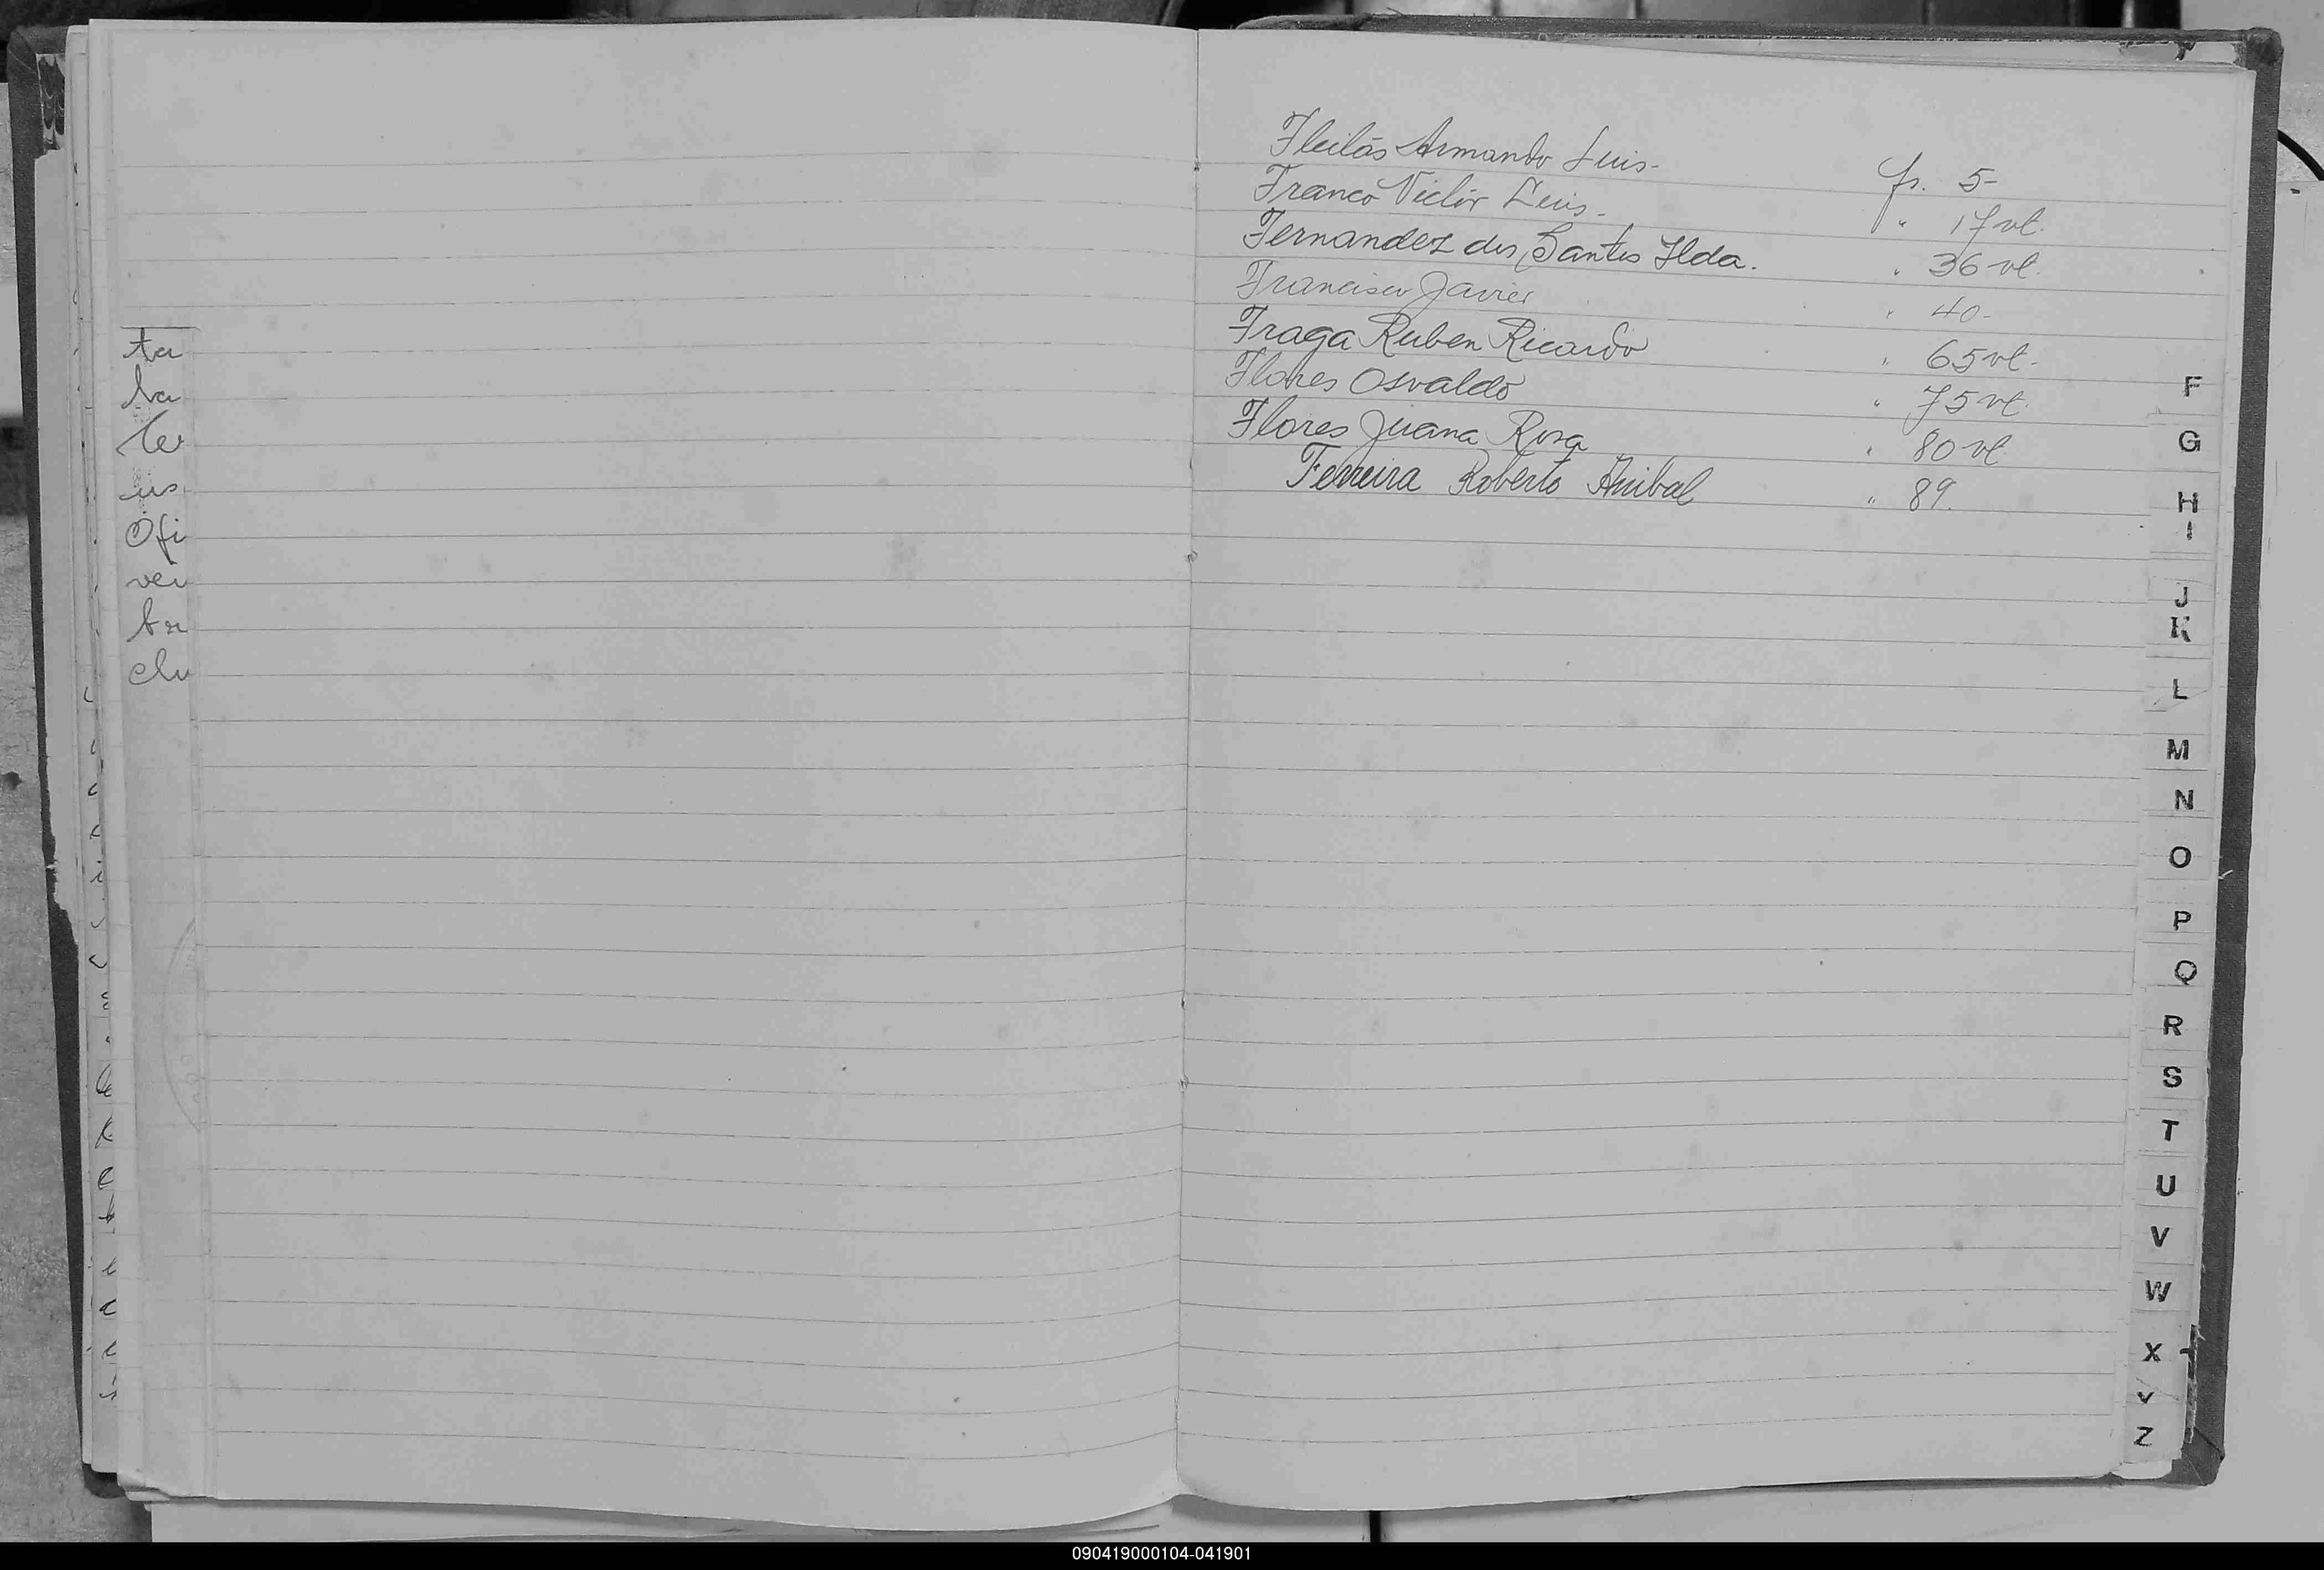 ta
la
us
Ofi
ven
Fleitas Armando Luis- fs. 5-
Franco Victor Luis- " 17 vt.
Fernandez dos Santos Ilda. " 36 vt.
Francisco Javier " 40-
Fraga Ruben Ricardo " 65 vt-
Flores Osvaldo " 75 vt.
Flores Juana Rosa " 80 vt
Ferreira Roberto Anibal " 89.
F
G
H
I
J
K
L
M
N
O
P
Q
R
S
T
U
V
W
X
Y
Z
090419000104-041901